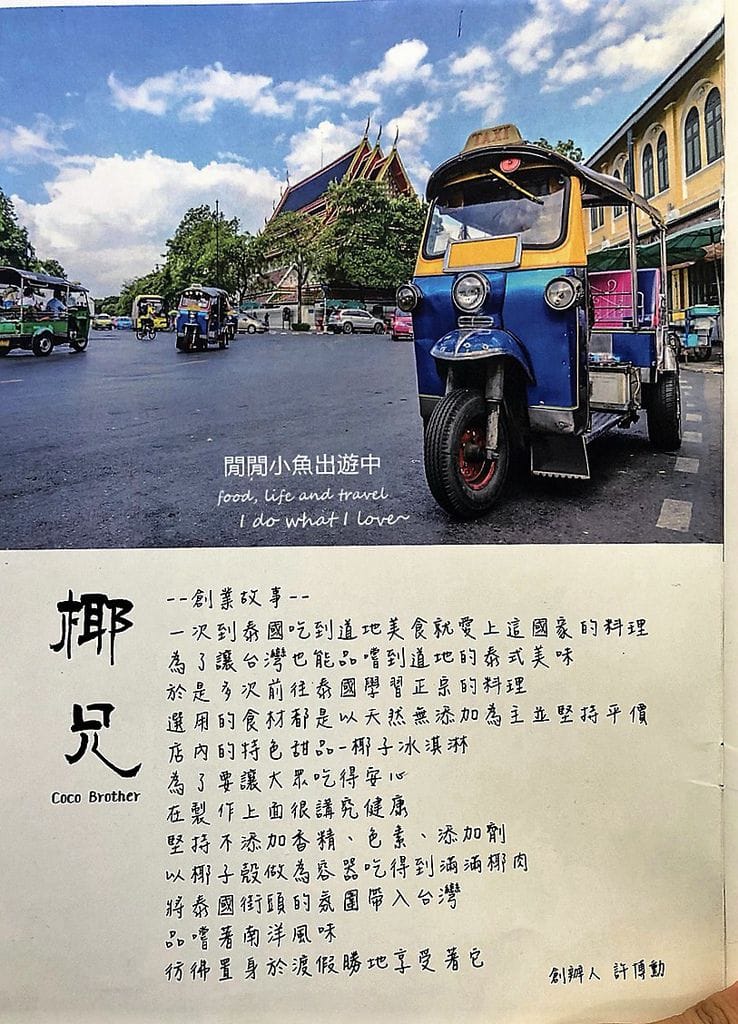 TAXI
閒閒小魚出遊中
food, life and travel
I do what I love~
椰兄
Coco Brother
--創業故事--
一次到泰國吃到道地美食就愛上這國家的料理
為了讓台灣也能品嚐到道地的泰式美味
於是多次前往泰國學習正宗的料理
選用的食材都是以天然無添加為主並堅持平價
店內的特色甜品-椰子冰淇淋
為了要讓大眾吃得安心
在製作上面很講究健康
堅持不添加香精、色素、添加劑
以椰子殼做為容器吃得到滿滿椰肉
將泰國街頭的氛圍帶入台灣
品嚐著南洋風味
彷彿置身於渡假勝地享受著它
創辦人 許博勛